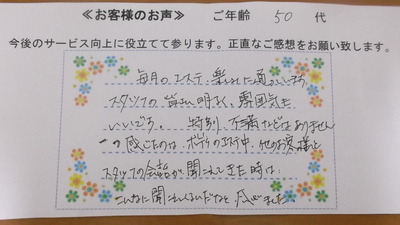 ≪お客様のお声≫ ご年齢 50 代
今後のサービス向上に役立てて参ります。正直なご感想をお願い致します。
毎月のエステ、楽しみに通っています。
スタッフの皆さん明るく、雰囲気も
いいです。 特別、不満などはありません
一つ感じたのは、ボディのエステ中、他のお客様と
スタッフの会話が聞こえてきた時は
こんなに聞こえるんだなと、感じました